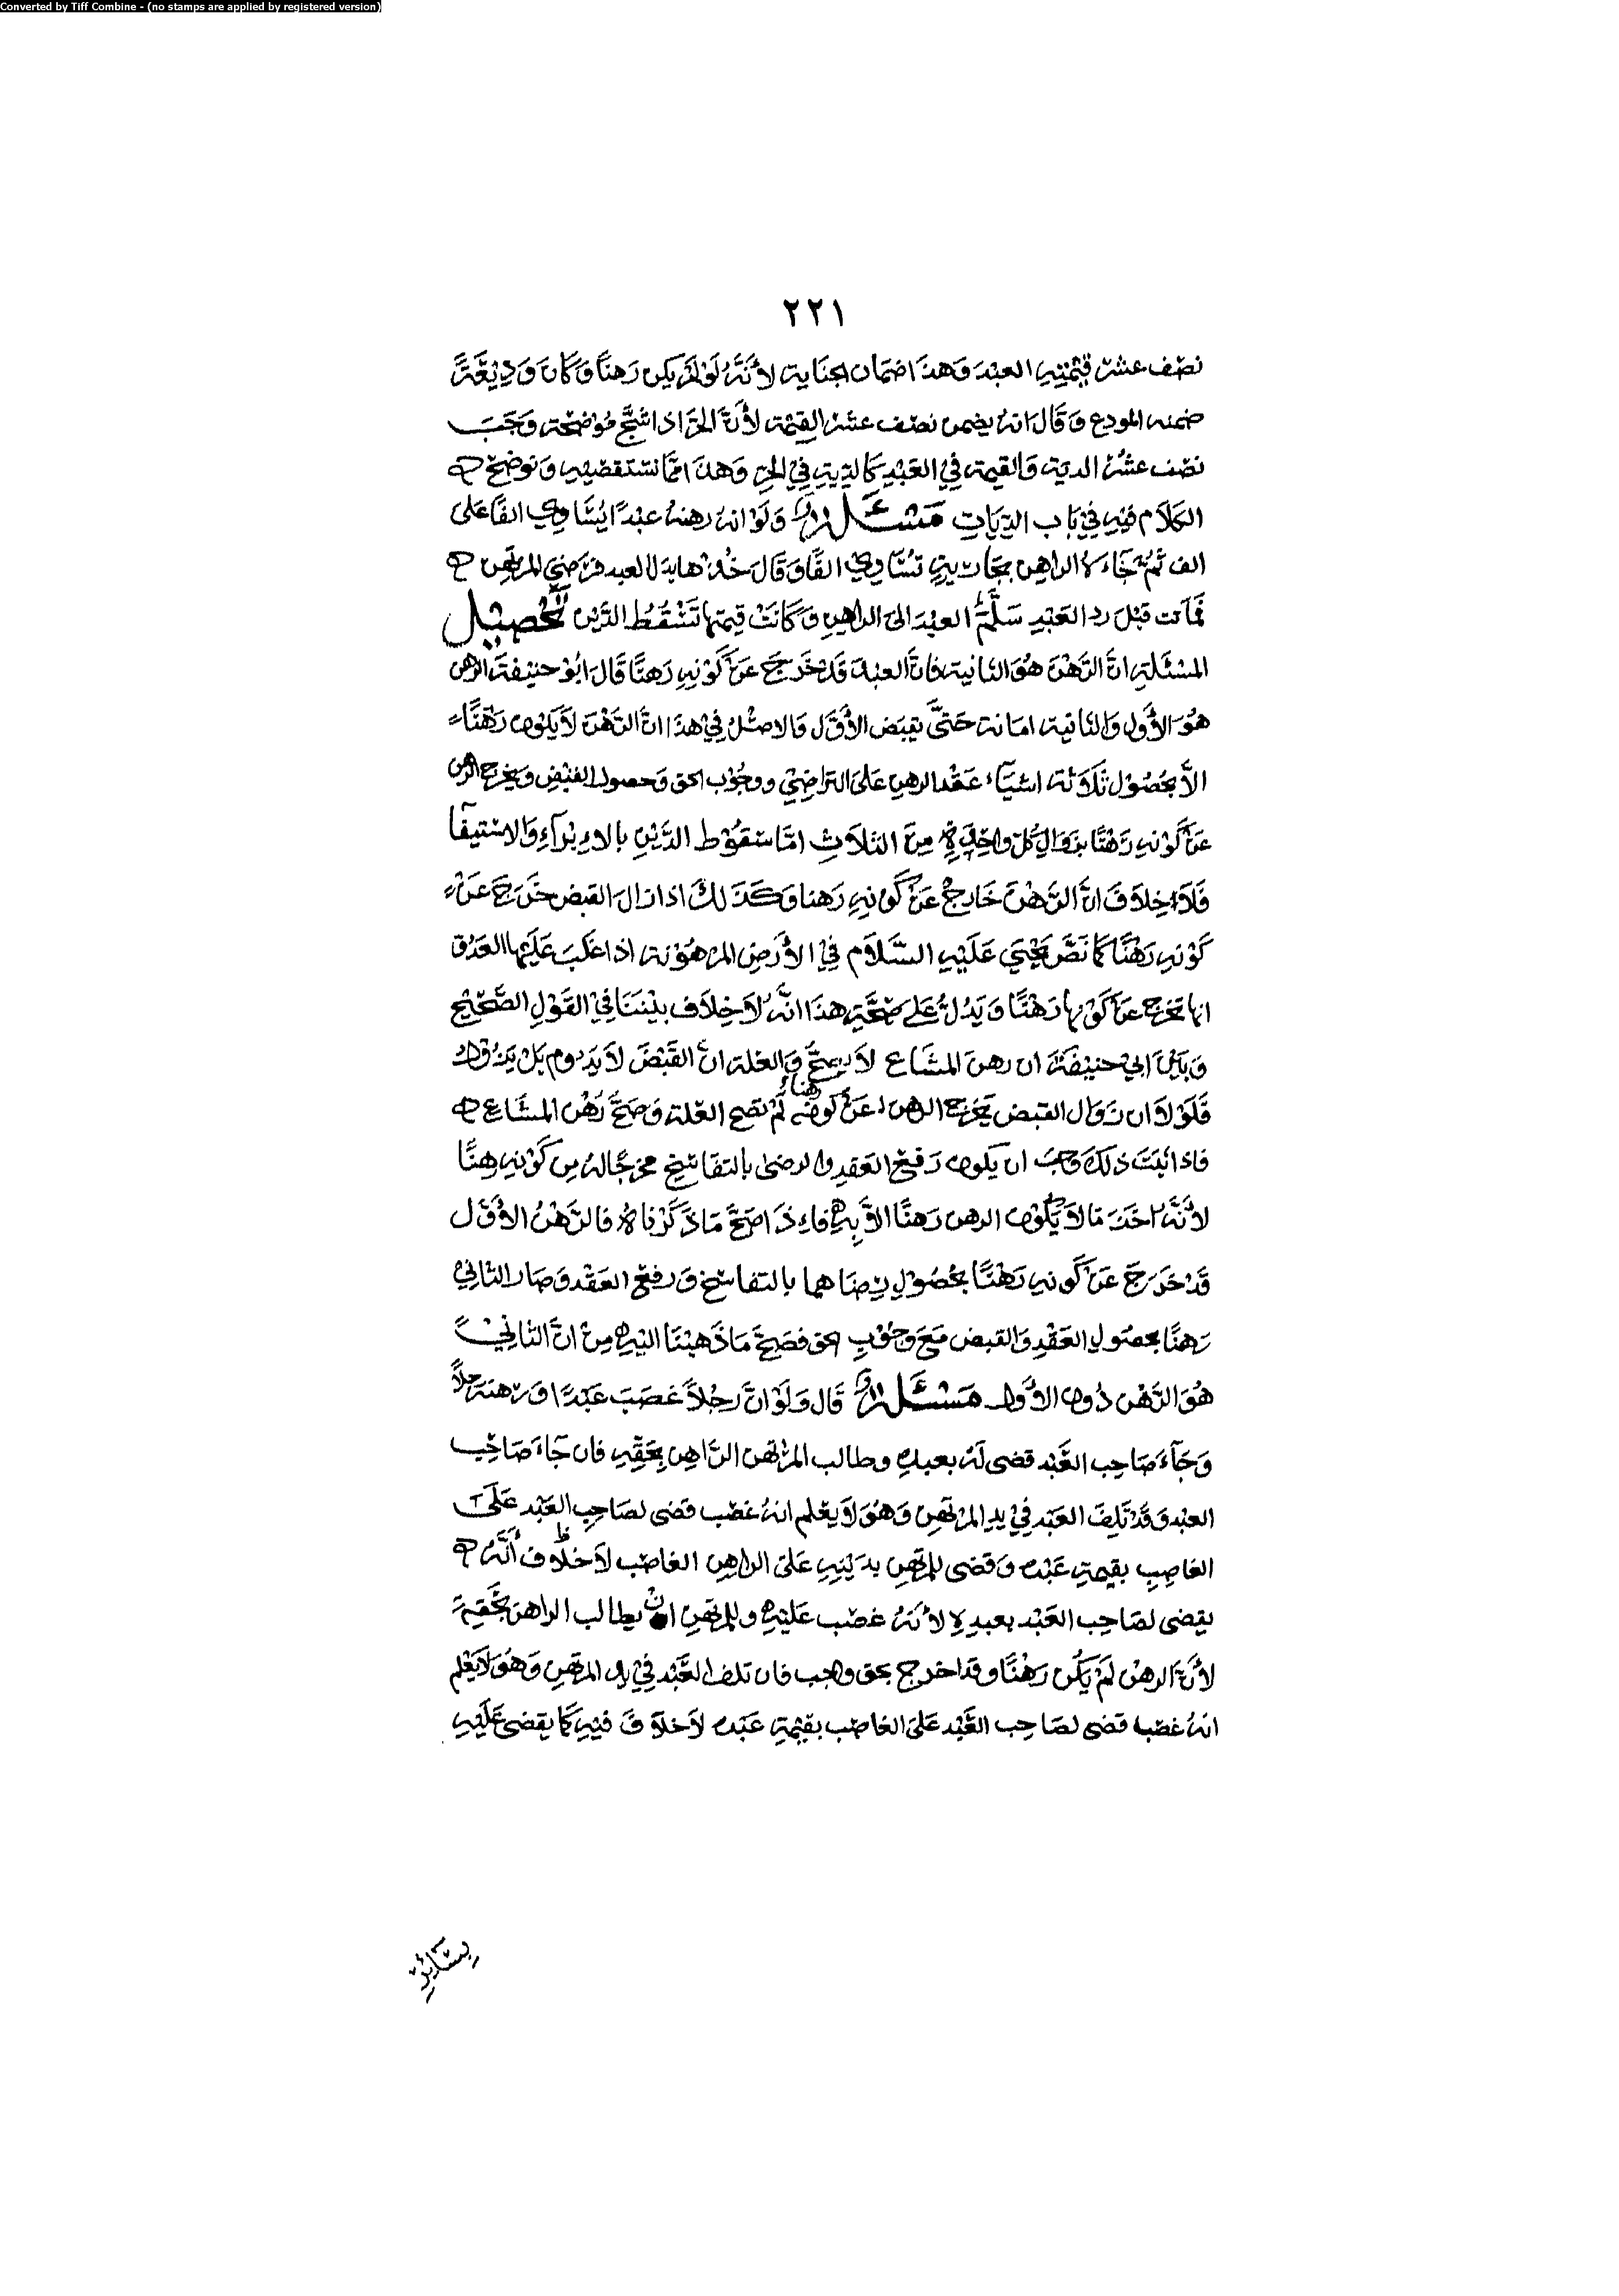 Converted by Tiff Combine - (no stamps are applied by registered version)
٢٢١
نصف عشر قيمته العبد وَهذا ضمان جناية لأنَّهُ لَوْ لَمْ يكن رَهنًا وَكَانَ وَدِيْعَةً
ضمنه المودع وَقَال انهُ يضمن نصف عشر القيمة لأنَّ الحرّ اذا شجَّ مُوْضحَة وَجَبَ
نصف عشْر الدية وَالقيمة فِي العَبْدِ كَالدِّيةِ فِي الحر وَهذا ممَّا نستقصيه وَنوضح
الكلاَم فيه في بَاب الدِّيَاتِ مَسْئَلة وَلَوْ انهُ رهنهُ عبْدًا يُسَاوي الفًا عَلى
الف ثُمَّ جَاءَهُ الراهِن بجَاريةٍ تُسَاوي الفًا وَقَال خُذها بدَل العبد فرَضي المرتهِن
فمَاتت قبْل رد العَبْدِ سَلَّمَ العبْدَ الى الراهِن وَكَانَتْ قيمتها تَسْقُطُ الدَّيْن تَحْصِيْل
المسْئَلةِ انَّ الرَّهْنَ هُوَ الثانية فانَّ العبدَ قَدْ خَرَجَ عَنْ كَوْنهِ رَهنًا قَالَ ابُوْ حنيْفةَ الرهن
هُوَ الأَول وَالثانية امانة حَتىَّ يقبَض الأَوَّل وَالاصْلُ فِيْ هذَا انَّ الرَّهْنَ لاَ يَكونُ رَهْنًا
الاَّ بحُصُوْل ثَلاَثة اشيَاء عَقْد الرهن عَلىَ التراضِيْ ووجُوْب الحق وَحصول القبْض وَيخرج الرهن
عَنْ كَوْنهِ رَهْنًا بزَوَال كُلّ واحِدٍ مِنَ الثلاَثِ امَّا سقُوْط الدَّيْنِ بالاِبْرَآءِ وَالاسْتيفَا
فَلاَ خِلاَفَ انَّ الرَّهْنَ خَارجٌ عَنْ كَوْنهِ رَهنا وَكَذَلكَ اذا زالَ القبض خَرَجَ عَنْ
كَوْنهِ رَهْنًا كمَا نَصَّ يَحْيَى عَلَيْهِ السَّلاَم فِي الأَرْضِ المرْهُوْنة اذا غلَبَ عَلَيْها العَدُوّ
انها تخرج عن كَوْنها رَهْنًا وَيَدُلُّ عَلى صحَّةِ هذَا انَّهُ لاَ خِلاَف بيْننَا فِي القَوْلِ الصَّحِيْحِ
وَبَيْنَ ابيْ حنيْفَةَ ان رهن المشَاع لاَ يصحُّ وَالعلة انَّ القَبْضَ لاَ يَدُوم بَلْ يَزُوْلُ
فَلَوْلاَ ان زَوَال القبض يُخرج الرهن عَنْ كَونه رهنا لَمْ تصح العِلة وَصَحَّ رَهْن المشَاع
فاذا ثبَتَ ذلكَ وَجَبَ ان يَكون رَفْع العَقد وَالرضى بالتفَاسُخِ مخرجًا لهُ مِن كَوْنهِ رهنًا
لأنَّهُ احَد مَا لاَ يَكُون الرهن رَهنًا الاَّ بِهِ فاِذَا صَحَّ مَا ذَكَرْنَاهُ فالرَّهْنُ الأَوَّل
قَدْ خَرَجَ عَنْ كَونهِ رَهْنًا بحُصُوْلِ رضَاهما بالتفاسُخ وَرفع العَقْد وَصَار الثاني
رَهنًا بحصُول العَقْدِ وَالقبض مَعَ وجُوْبِ الحق فصَحَّ مَا ذَهبْنَا اليْهِ مِنْ انَّ الثاني
هُوَ الرَّهْن دُون الأَول مَسْئَلة قَال وَلَوْ انَّ رَجُلاً غصَبَ عَبْدًا وَرَهنهُ رَجلاً
وَجَآءَ صَاحِب العَبْد قضى لَهُ بعبدِهِ وطالب المرْتهن الرَّاهِن بحَقِّهِ فان جَاءَ صَاحِب
العبْد وَقَدْ تَلِفَ العَبْد فيْ يدِ المرْتهِن وَهُوَ لاَ يعْلم انهُ غصْب قضى لصَاحِبِ العَبْد عَلَى
الغاصِبِ بقيمةِ عَبْده وَقضى للمرتهِن بدَيْنِهِ عَلىَ الراهِن الغاصِب لاَ خلاَف أنَّهُ
يقضى لصَاحِب العَبْد بعبدِهِ لأَنهُ غصْب عَليْهِ وللمرتهِن ان يطالب الراهن بحَقِهِ
لأَنَّ الرهن لَمْ يَكُن رَهْنًا وَقد اخرج بحق وَاجب فان تلف العَبْد فيْ يد المرتهن وَهُوَ لاَ يَعْلم
انهُ غصْب قضى لصَاحِب العَبْد عَلىَ الغاصِب بقيْمةِ عَبْده لاَ خلاَفَ فيْهِ كَمَا يقضى عَلَيْهِ
بسَائِرِ